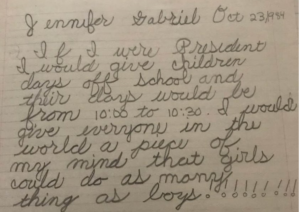 Jennifer Gabriel Oct 23, 1984
If I were President
I would give children
days off school and
their days would be
from 10:00 to 10:30. I would
give everyone in the
world a piece of
my mind that girls
could do as many
thing as boys.!!!!!!!!